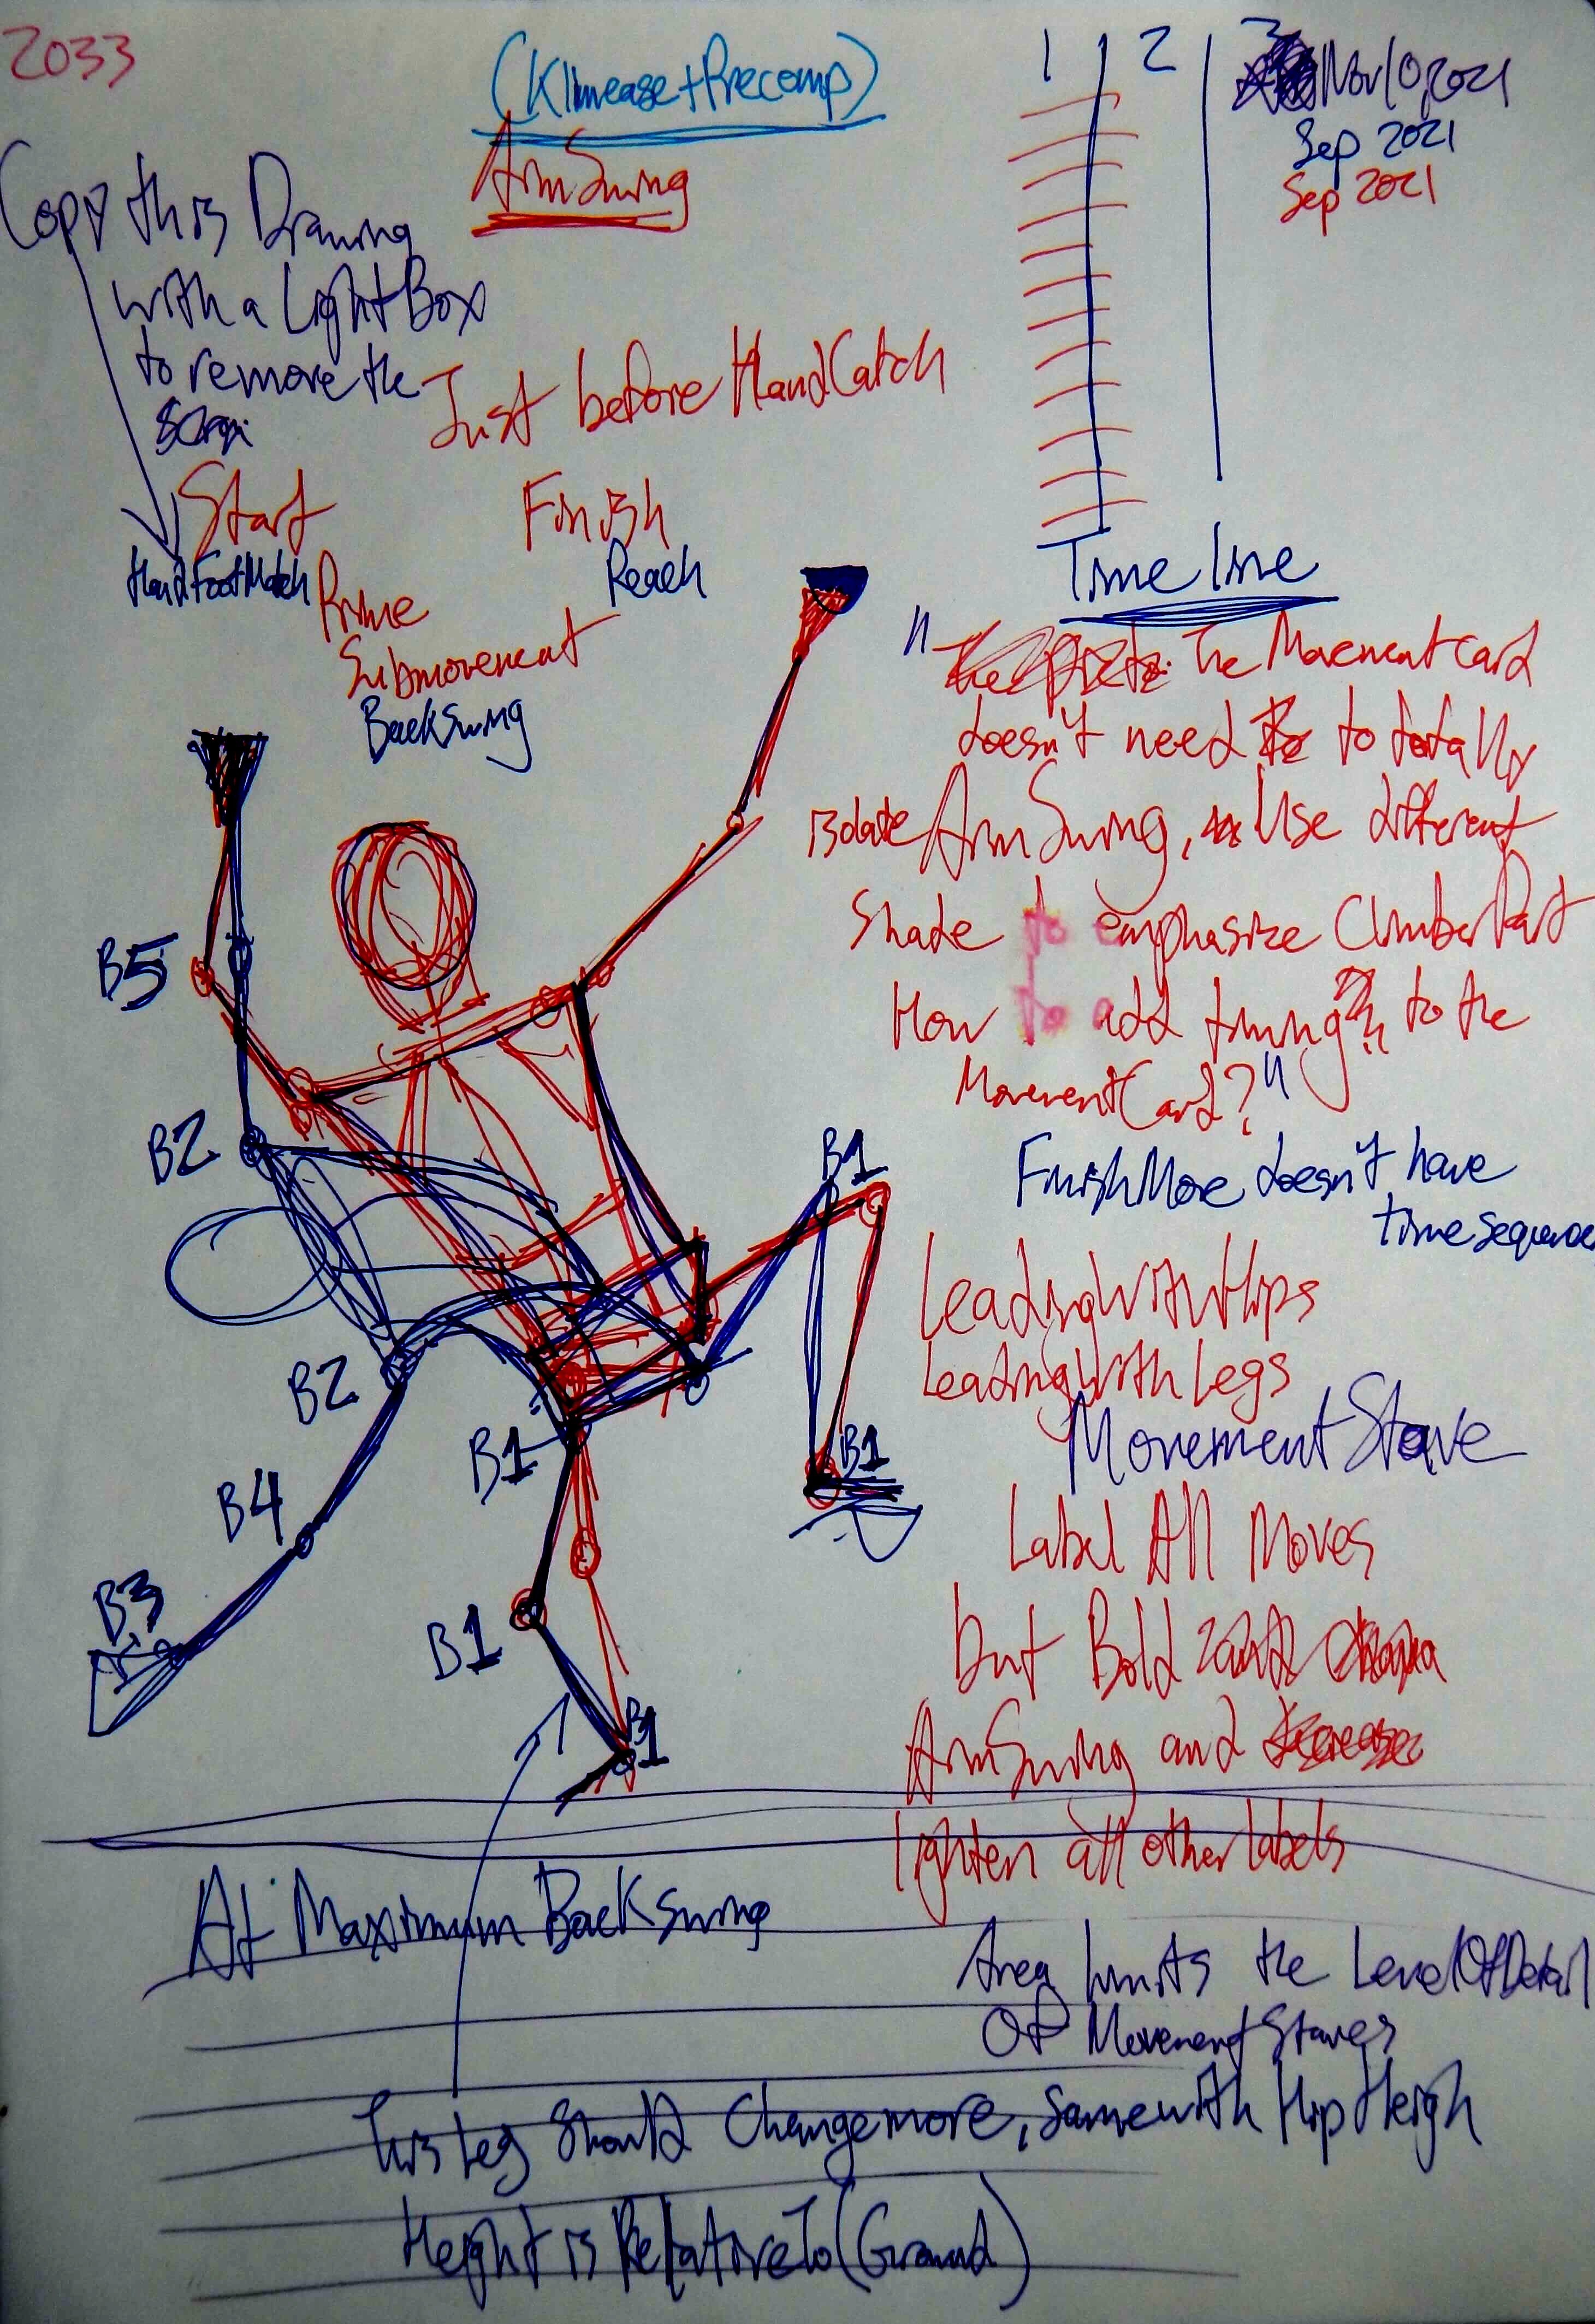 2033
(Klimease+Precomp)
ArmSwing
1 2 3
Nov 10, 2021
Sep 2021
Sep 2021
Copy this Drawing
with a LightBox
to remove the
Just before HandCatch
Start
Finish
HandFootMatch
Reach
Prime
Submovement
BackSwing
Time line
" The MovementCard
doesn't need to totally
isolate ArmSwing, Use different
Shade to emphasize ClimberPart
How to add timing to the
MovementCard?"
FinishMove doesn't have
time sequence
LeadingWithHips
LeadingWithLegs
MovementStave
Label All Moves
but Bold
ArmSwing and
lighten all other labels
B5
B2
B1
B2
B1
B1
B4
B3
B1
B1
At Maximum BackSwing
Area limits the LevelOfDetail
Of MovementStaves
This Leg Should Change more, same with HipHeigh
Height is RelativeTo(Ground)